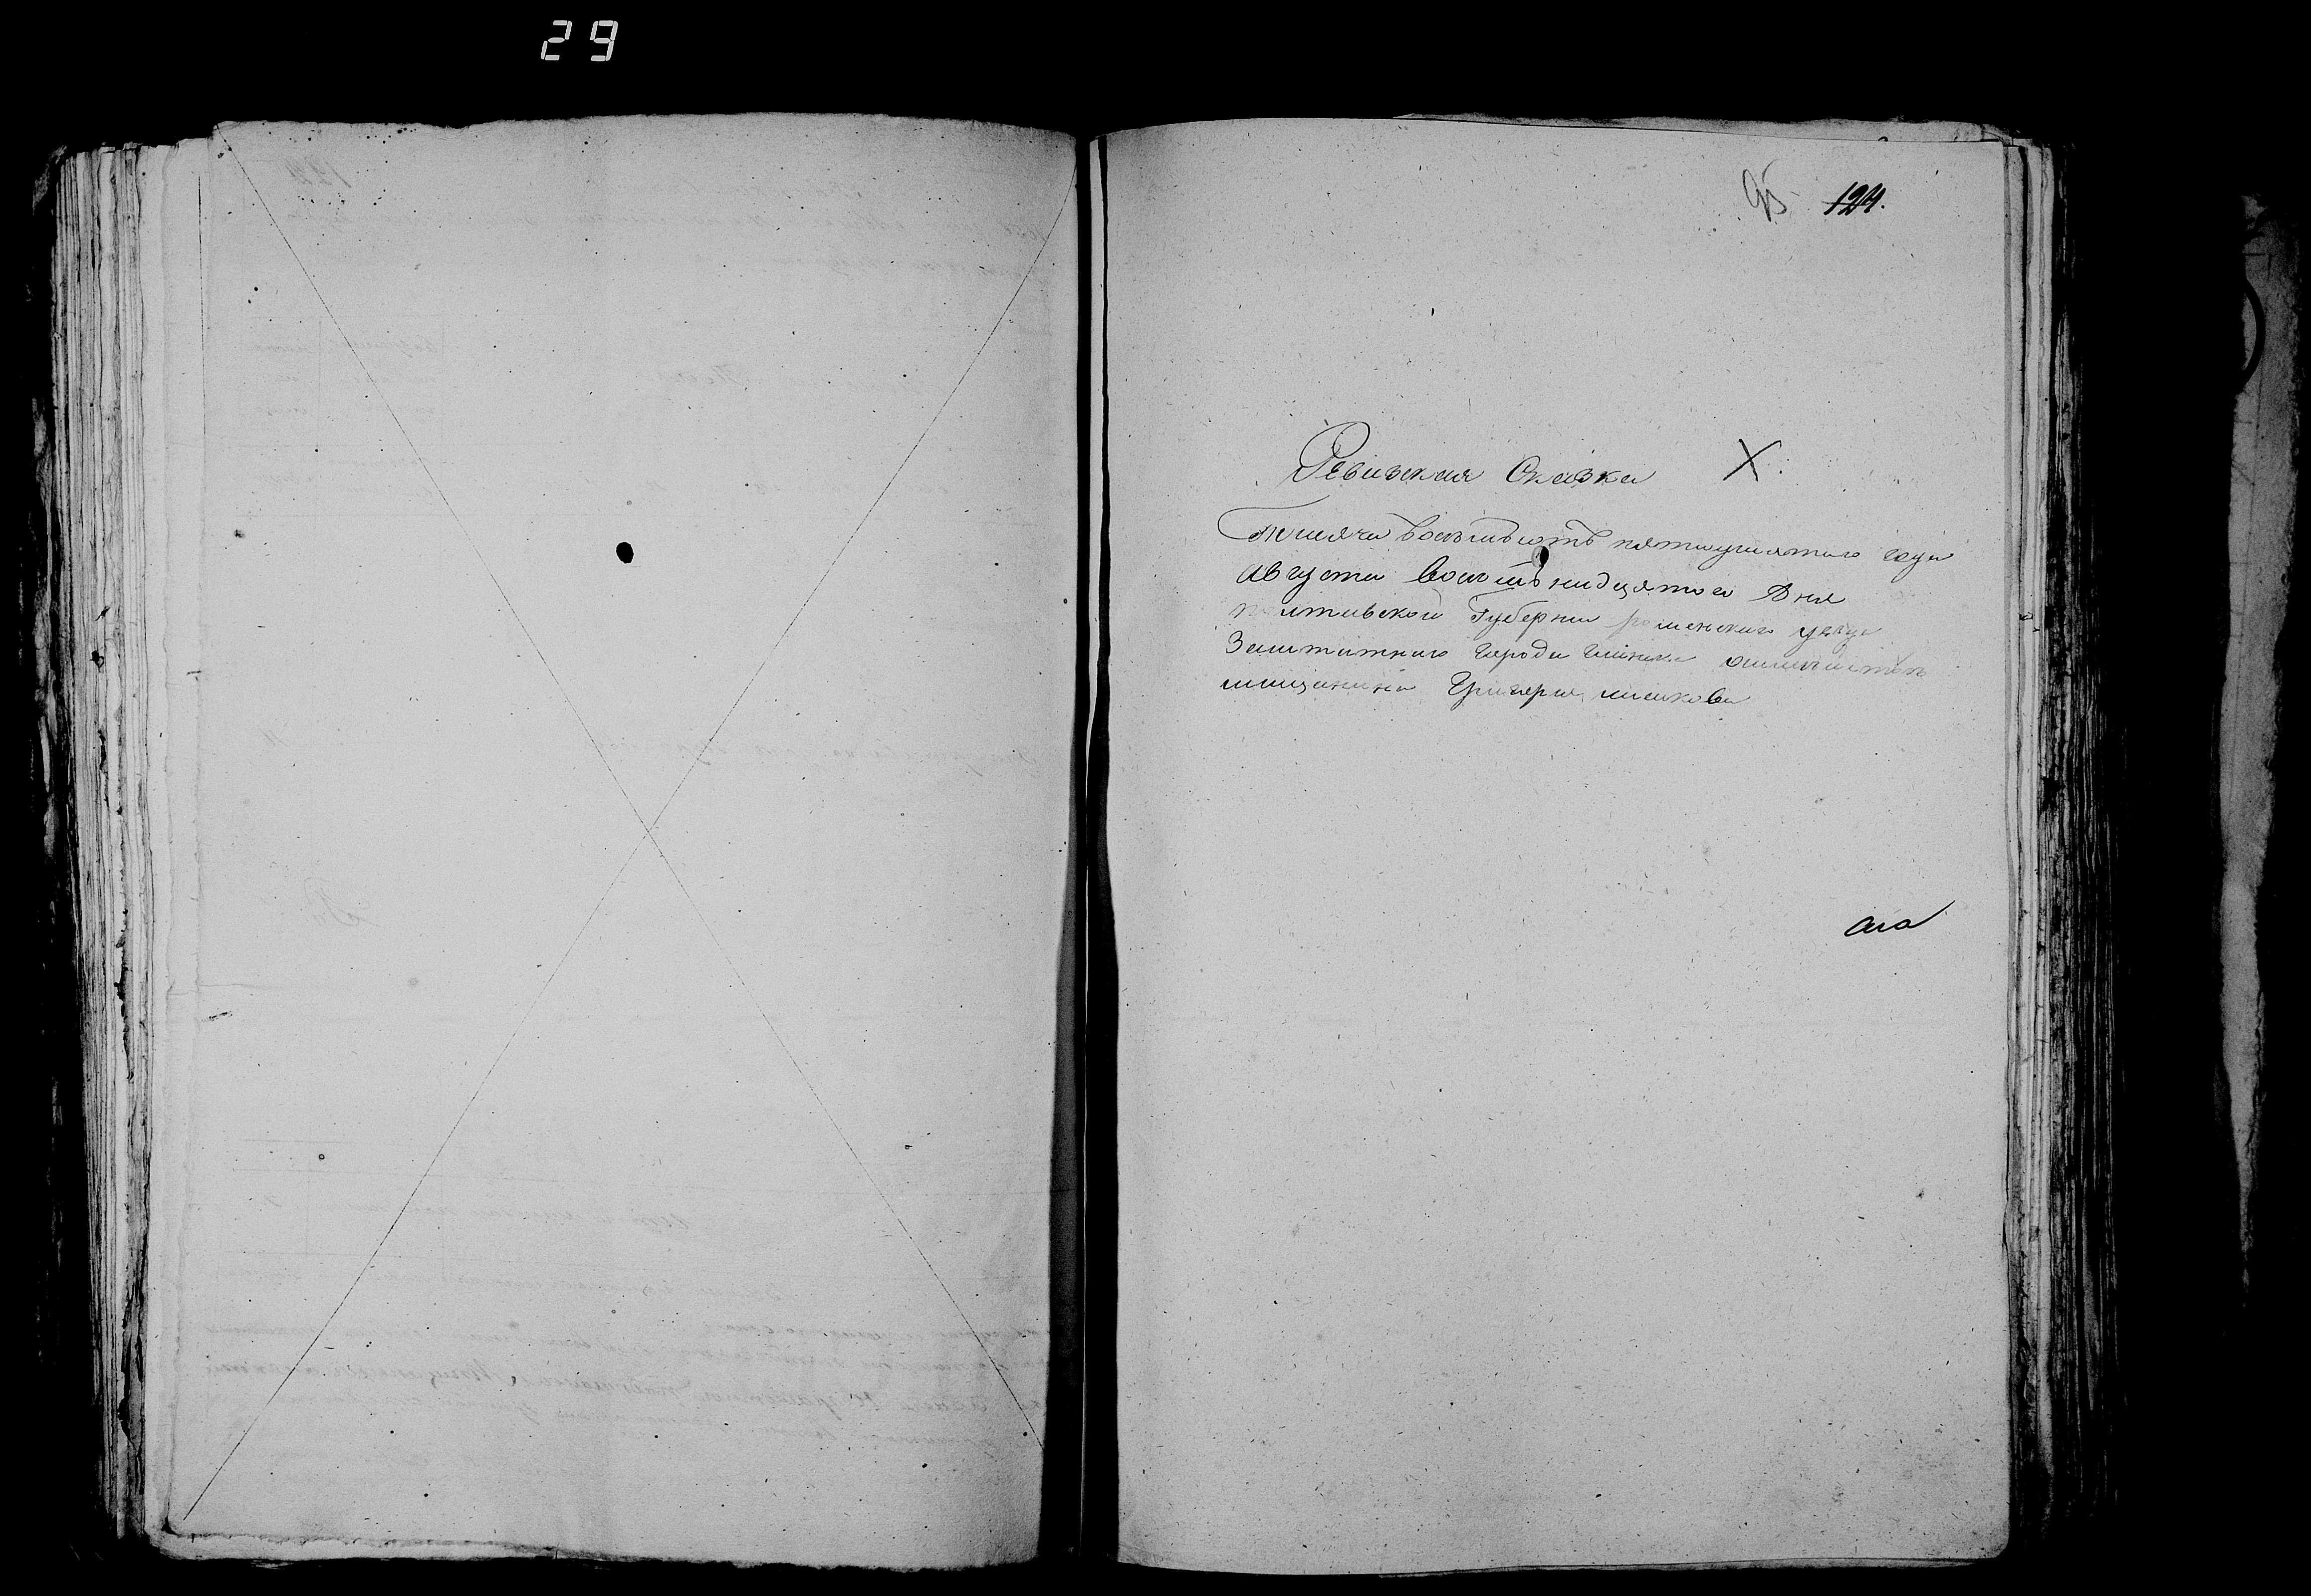 29
95 124.
Ревизская Сказка X
Тысяча восемьсотъ пятидесятого года
Августа восемьнадцятого Дня
полтавской Губернии роменского уезда
Заштатного города Глинска
мещанина Григория